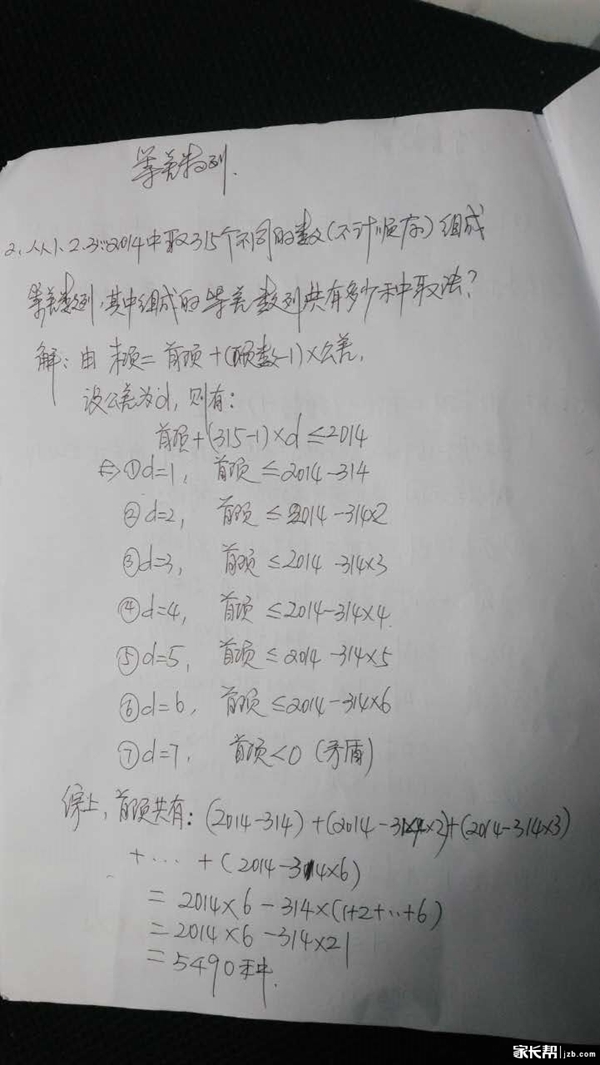 等差数列.
2、从1、2、3…2014中取315个不同的数(不计顺序)组成
等差数列,其中组成的等差数列共有多少种取法?
解:由 末项=首项+(项数-1)×公差,
设公差为d,则有:
首项+(315-1)×d≤2014
⇔①d=1, 首项≤2014-314
②d=2, 首项≤2014-314×2
③d=3, 首项≤2014-314×3
④d=4, 首项≤2014-314×4
⑤d=5, 首项≤2014-314×5
⑥d=6, 首项≤2014-314×6
⑦d=7, 首项<0(矛盾)
综上,首项共有:(2014-314)+(2014-314×2)+(2014-314×3)
+…+(2014-314×6)
=2014×6-314×(1+2+…+6)
=2014×6-314×21
=5490种.
家长帮 jzb.com